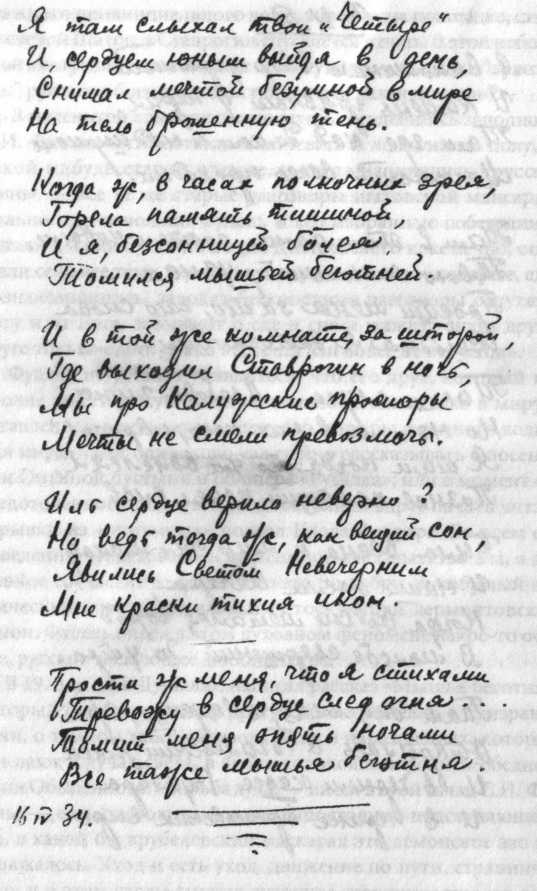 Я там слыхал твои „Четыре“
И, сердцем юным выйдя в день,
Снимал мечтой безумной в мире
На тело брошенную тень.
Когда ж в часах полночных зрея,
Горела память тишиной,
И я, безсонницей болея,
Томился мышьей беготней.
И в той же комнате, за шторой,
Где выходил Ставрогин в ночь,
Мы про Калужские просторы
Мечты не смели превозмочь.
Иль сердце верило неверно?
Но ведь тогда ж, как вещий сон,
Явились Светом Невечерним
Мне краски тихия икон.
Прости ж меня, что я стихами
Тревожу в сердце след огня...
Томит меня опять ночами
Все та же мышья беготня.
16 IV 34.